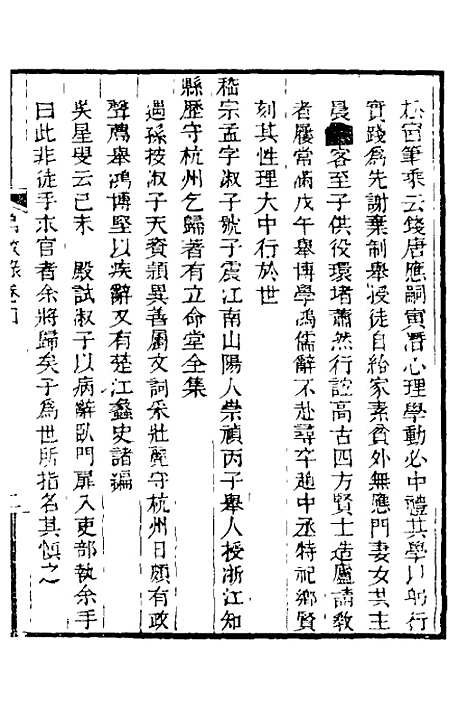 松窗筆乘云錢唐應嗣寅潛心理學動必中禮其學以躬行
實踐爲先謝棄制舉授徒自給家素貧外無應門妻女共主
晨 客至子供役環堵蕭然行誼高古四方賢士造廬請敎
者屨常滿戊午舉博學鴻儒辭不赴尋卒趙中丞特祀鄉賢
刻其性理大中行於世
嵇宗孟字淑子號子震江南山陽人崇禎丙子舉人授浙江知
縣歷守杭州乞歸著有立命堂全集
遇孫按淑子天資穎異善屬文詞采壯麗守杭州日頗有政
聲薦舉鴻博堅以疾辭又有楚江蠡史諸編
吳星叟云己未 殿試淑子以病辭臥門扉入吏部執余手
曰此非徒乎求官者余將歸矣子爲世所指名其愼之
錄卷四
二